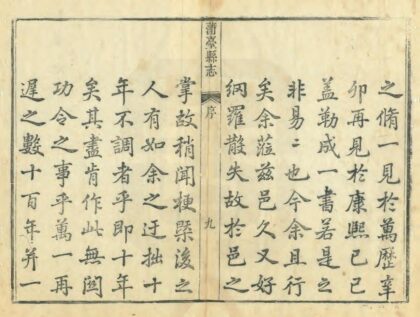 之脩一見於萬歷辛
卯再見於康熙己巳
蓋勒成一書若是之
非易〻也今余且行
矣余蒞茲邑久又好
網羅散失故於邑之
蒲臺縣志
序
九
掌故稍聞梗槩後之
人有如余之迂拙十
年不調者乎即十年
矣其盡肯作此無關
功令之事乎萬一再
遲之數十百年并一